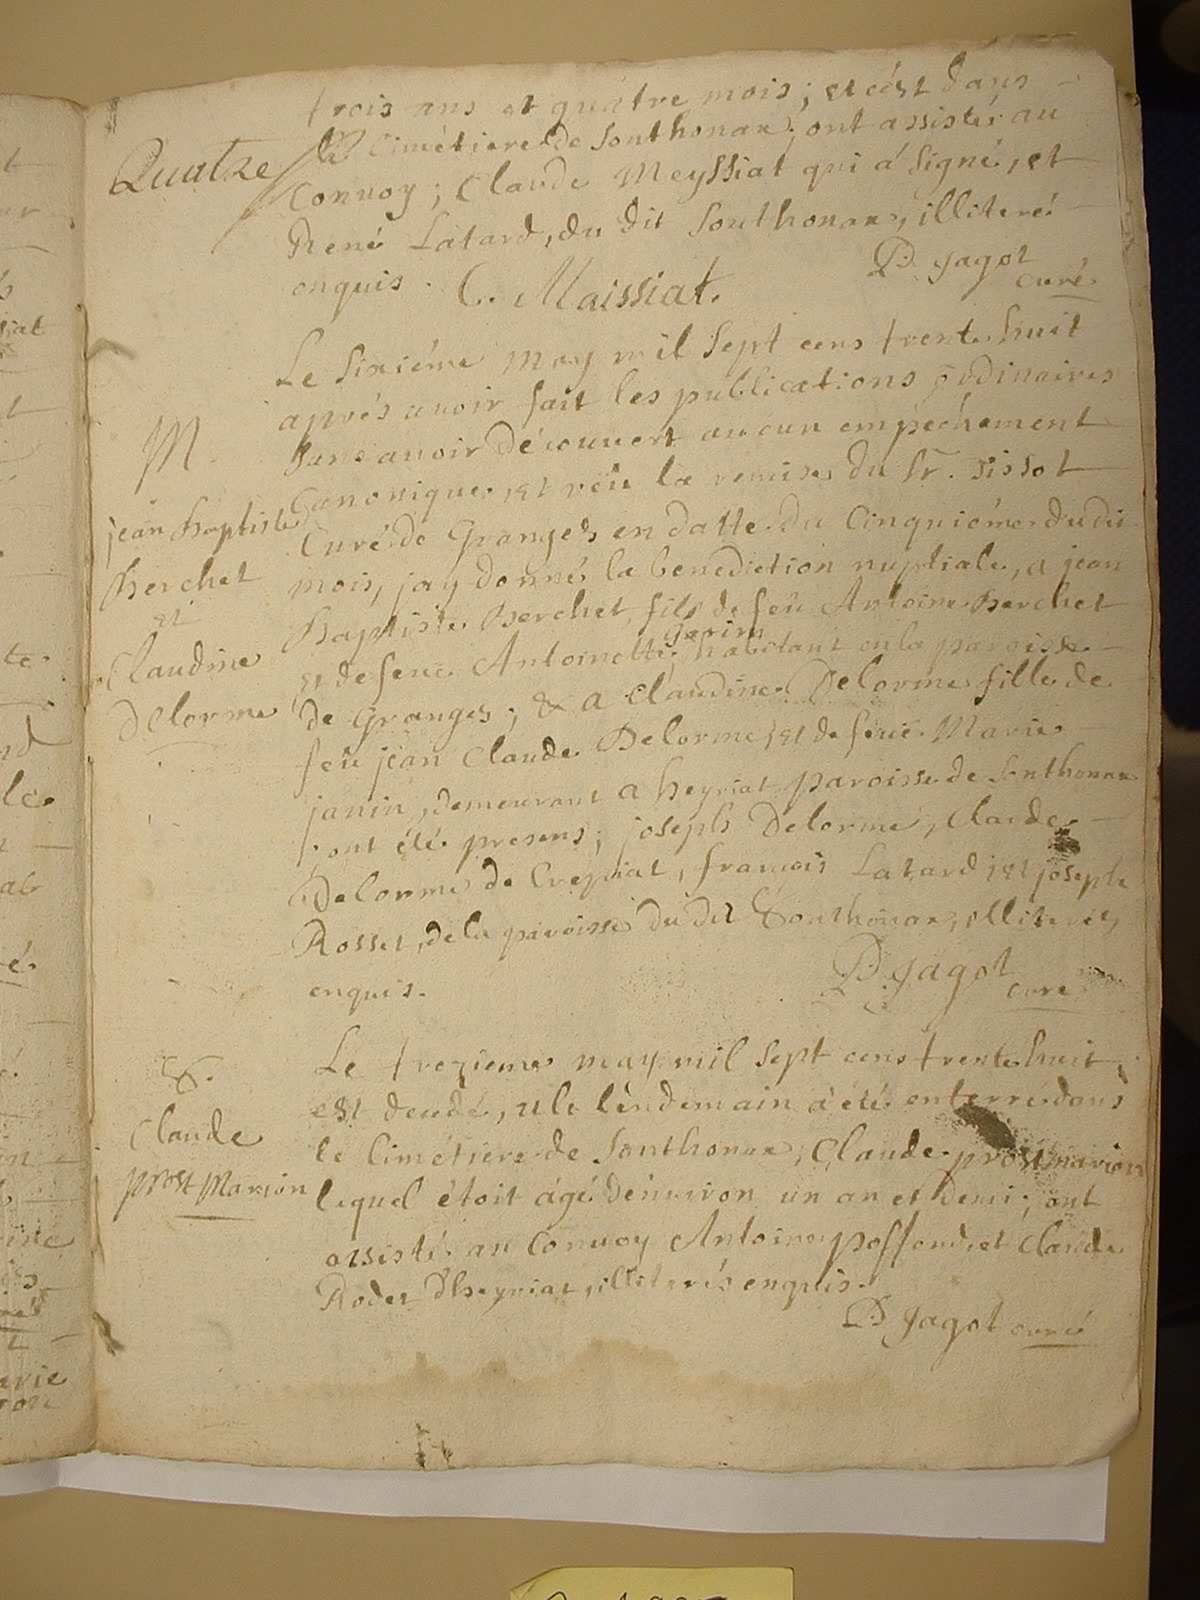 trois ans et quatre mois; et cést dans
Quatre
le Cimétiere de Sonthonax; ont assistés au
Convoy; Claude Meyssiat qui á signé, et
René Latard, du dit Sonthonax, illiteré
enquis. C. Maissiat. D. Jagot curé
Le sixiéme may mil sept cens trente huit
aprés avoir fait les publications ordinaires
M.
sans avoir découvert aucun empechement
Canonique, et veü la remise du Sr. Sissot
jean Baptiste
Curé de Granges en datte du Cinquiéme du dit
mois, jay donné la benediction nuptiale, a jean
Berchet
Baptiste Berchet, fils de feü Antoine Berchet
et
et de feüe Antoinette Garin, habitant en la paroisse
Claudine
de Granges; & a Claudine Delorme fille de
Delorme
feü jean Claude Delorme, et de feüe Marie
janin, demeurant a heyriat paroisse de Sonthonax
ont été presens; joseph Delorme, Claude
Delorme de Crepiat, françois Latard, et joseph
Rosset, de la paroisse du dit Sonthonax, illiterés,
enquis. D. Jagot curé
Le trezieme may mil sept cens trente huit,
&.
est decedé, et le lendemain à été enterré dans
Claude
le Cimetiere de Sonthonax, Claude prost marion
prost Marion
lequel étoit ágé denviron un an et demi; ont
assisté au Convoy Antoine poffond, et Claude
Rodet d'heyriat, illiterés enquis.
D Jagot curé